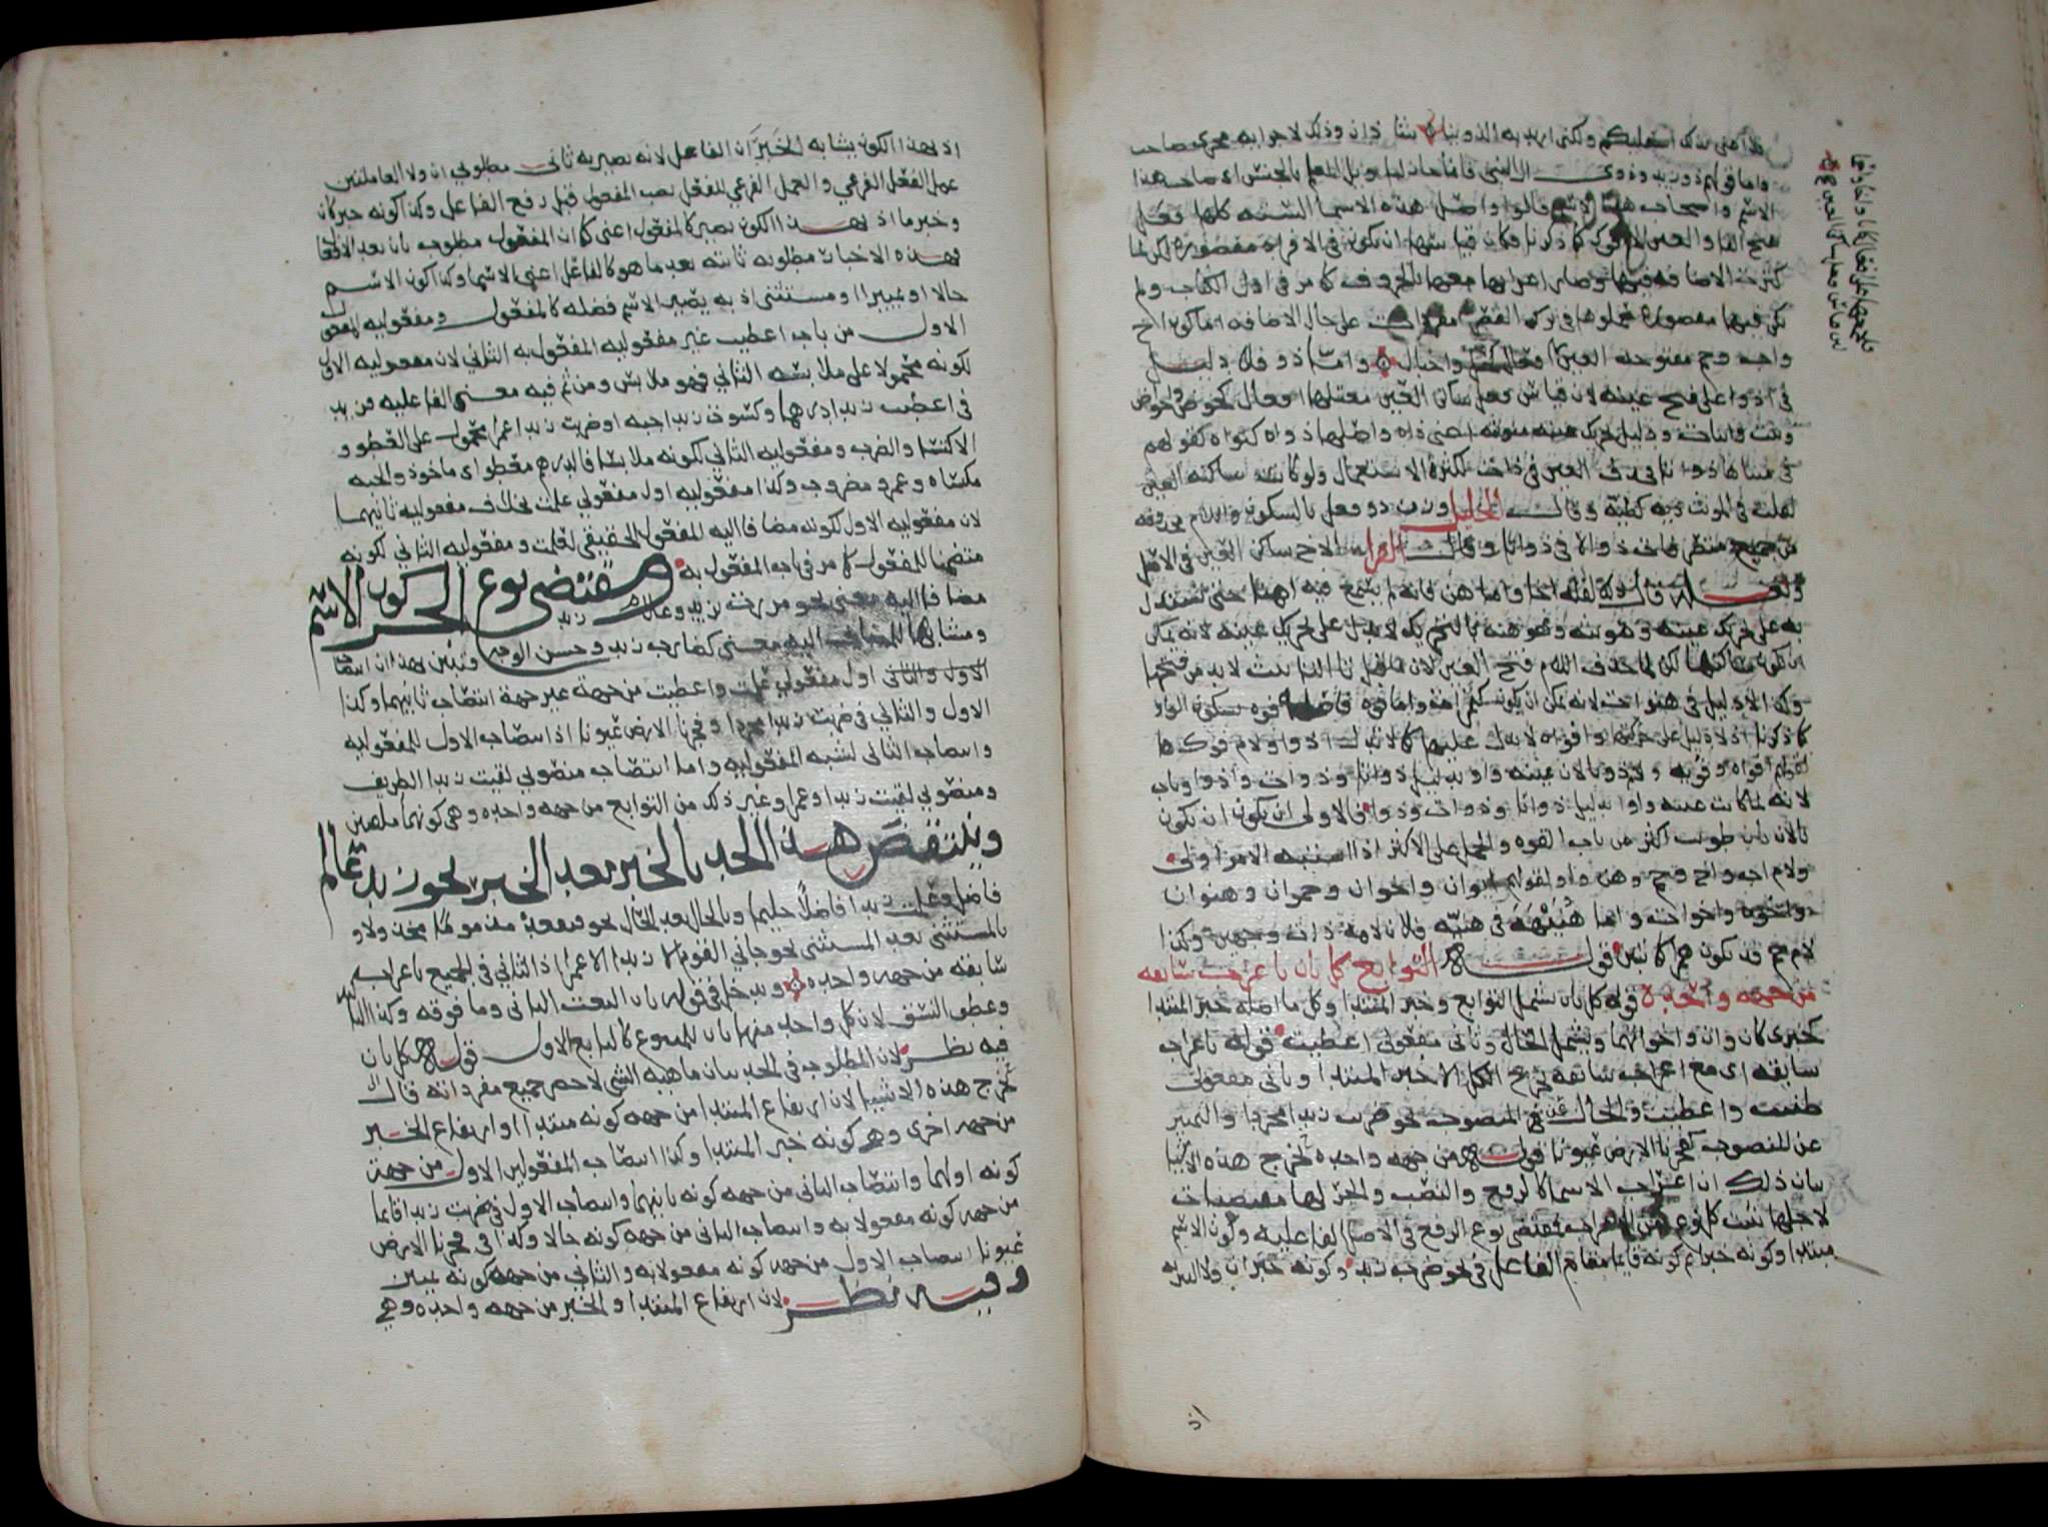 فلا اعني بذلك اسفليكم ولكني اريد به الذوينا شاذان وذلك لاجرا به مجرى صاحب
واما قولهم ذو زيد وذوى
الاسم واصحاب هذا الاسم قالوا واصل هذه الاسما الستة كلها فعل
بفتح الفا والعين كما ذكرنا فكان قياسها ان تكون في الافراد مقصورة لكن لما
كثرت الاضافة فيها وصار اعرابها معها بالحروف كما مر في اول الكتاب ولم
تكن فيها مقصورة على حال الاضافة اما كون اخ
واب وحم مفتوحة العين واما ذو فلا دليل
في اذوا على فتح عينه لان قياس فعل ساكن العين معتلها افعال كحوض واحواض
وبيت وابيات ودليل تحرك عينه مؤنثه اعني ذاة واصلها ذواة كنواة كقولهم
في مثناها ذواتا فحذف العين في ذات لكثرة الاستعمال ولو كانت ساكنة العين
لقلت في المونث ذية كطية وقال الخليل وزن ذو فعل بالسكون واللام محذوفة
في جميع متصرفاته ذواتا وقال الفرا الاخ ساكن العين في الاصل
به على تحرك عينه وهنوته وهو هنة بالتحريك لا يدل على تحريك عينه لانه يمكن
ان تكون ساكنها لكن لما حذف اللام فتح العين لان ما قبل تا التانيث لا بد من فتحها
ولا دليل في هنوات لانه يمكن ان يكون كتمرات واما فوه فاصله فوه بسكون الواو
كما ذكرنا اذ لا دليل على حركتها وافواه لا يدل عليها كما لا يدل اذوا ولام فوك ها
لقولهم افواه وفويه ولام ذو يا لان عينه واو بدليل ذواتا وذوات واذوا وباب
لانه لما كانت عينه واوا بدليل ذواتا وذوات وذوا فالاولى ان يكون
يا لان باب طويت اكثر من باب القوة والحمل على الاكثر اذا اشتبه الامر اولى
ولام اب واخ وحم وهن واو لقولهم ابوان واخوان وحموان وهنوان
واخوة واخوات واما هنيهة في هنية
لام حم قد تكون همزا كما تبين قوله التوابع كل ثان باعراب سابقه
من جهة واحدة قوله كل ثان يشمل التوابع وخبر المبتدا وكل ما اصله خبر المبتدا
كخبري كان وان واخواتهما ويشمل الحال وثاني مفعولى اعطيت قوله باعراب
سابقه اي مع اعراب سابقه يخرج الكل الا خبر المبتدا وثاني مفعولى
ظننت واعطيت والحال عن المنصوب نحو ضربت زيدا مجردا والتمييز
عن المنصوب كفجرنا الارض عيونا قوله من جهة واحدة تخرج هذه الاشيا
بيان ذلك ان اعراب الاسما كالرفع والنصب والجر لها مقتضيات
لاجلها تثبت كل نوع من الاعراب فمقتضى نوع الرفع في الاصل الفاعلية وكون الاسم
مبتدا وكونه خبرا ثم كونه قايما مقام الفاعل في نحو ضرب زيد وكونه خبر ان ولا التبرئة
اذ
اذ بهذا الكون يشابه الخبران الفاعل لانه يصير به ثاني مطلوبي ان ولا العاملتين
عمل الفعل الفرعي والعمل الفرعي للفعل نصب المفعول قبل رفع الفاعل وكذا كونه خبر كان
وخبر ما اذ بهذا الكون يصير كالمفعول اعني كما ان المفعول مطلوب ثان بعد الاول
فهذه الاخبار مطلوبة ثانية بعد ما هو كالفاعل اعني الاسما وكذا كون الاسم
حالا او تمييزا او مستثنى اذ به يصير الاسم فضلة كالمفعول ومفعولية المفعول
الاول من باب اعطيت غير مفعولية المفعول به الثاني لان مفعولية الاول
لكونه محمولا على ملابسة الثاني فهو ملابس ومن ثم فيه معنى الفاعلية فزيد
في اعطيت زيدا درهما وكسوت زيدا جبة او ضربت زيدا عمرا محمول على العطو و
الاكتسا والضرب ومفعولية الثاني لكونه ملابسا فالدرهم معطو اي ماخوذ والجبة
مكتساه وعمرو مضروب وكذا مفعولية اول مفعولي علمت بخلاف مفعولية ثانيهما
لان مفعولية الاول لكونه مضافا اليه المفعول الحقيقي لعلمت ومفعولية الثاني لكونه
متضمنا للمفعول كما مر في باب المفعول به ومقتضى نوع الجر كون الاسم
مضافا اليه معنى نحو مررت بزيد وغلام زيد
ومشابها للمضاف اليه معنى كضارب زيد وحسن الوجه وتبين بهذا ان انتصاب
الاول والثاني اول مفعولي علمت واعطيت من جهة غير جهة انتصاب ثانيهما وكذا
الاول والثاني في ضربت زيدا مجردا وفجرنا الارض عيونا اذ انتصاب الاول للمفعولية
وانتصاب الثاني لشبه المفعولية واما انتصاب منصوبي لقيت زيدا الظريف
ومنصوبي لقيت زيدا وعمرا وغير ذلك من التوابع من جهة واحدة وهي كونهما ملقيين
وينتقض هذا الحد بالخبر بعد الخبر نحو زيد عالم
فاضل وعلمت زيدا فاضلا حليما وبالحال بعد الحال نحو فتقعد مذموما مخذولا و
بالمستثنى بعد المستثنى نحو جاني القوم الا زيدا الا عمرا اذ الثاني في الجميع باعراب
سابقه من جهة واحدة ويدخل في قوله ثان النعت الثاني وما فوقه وكذا التاكيد
وعطف النسق لان كل واحد منها ثان للمتبوع كالتابع الاول قوله كل ثان
فيه نظر لان المطلوب في الحد بيان ماهية الشي لا حصر جميع مفرداته قال
تخرج هذه الاشيا لان ارتفاع المبتدا من جهة كونه مبتدا وارتفاع الخبر
من جهة اخرى وهي كونه خبر المبتدا وكذا انتصاب المفعولين الاول من جهة
كونه اولهما وانتصاب الثاني من جهة كونه ثانيهما وانتصاب الاول في ضربت زيدا قايما
من جهة كونه مفعولا به وانتصاب الثاني من جهة كونه حالا وكذا في فجرنا الارض
عيونا انتصاب الاول من جهة كونه مفعولا به والثاني من جهة كونه تمييز
وفيه نظر لان ارتفاع المبتدا والخبر من جهة واحدة وهي